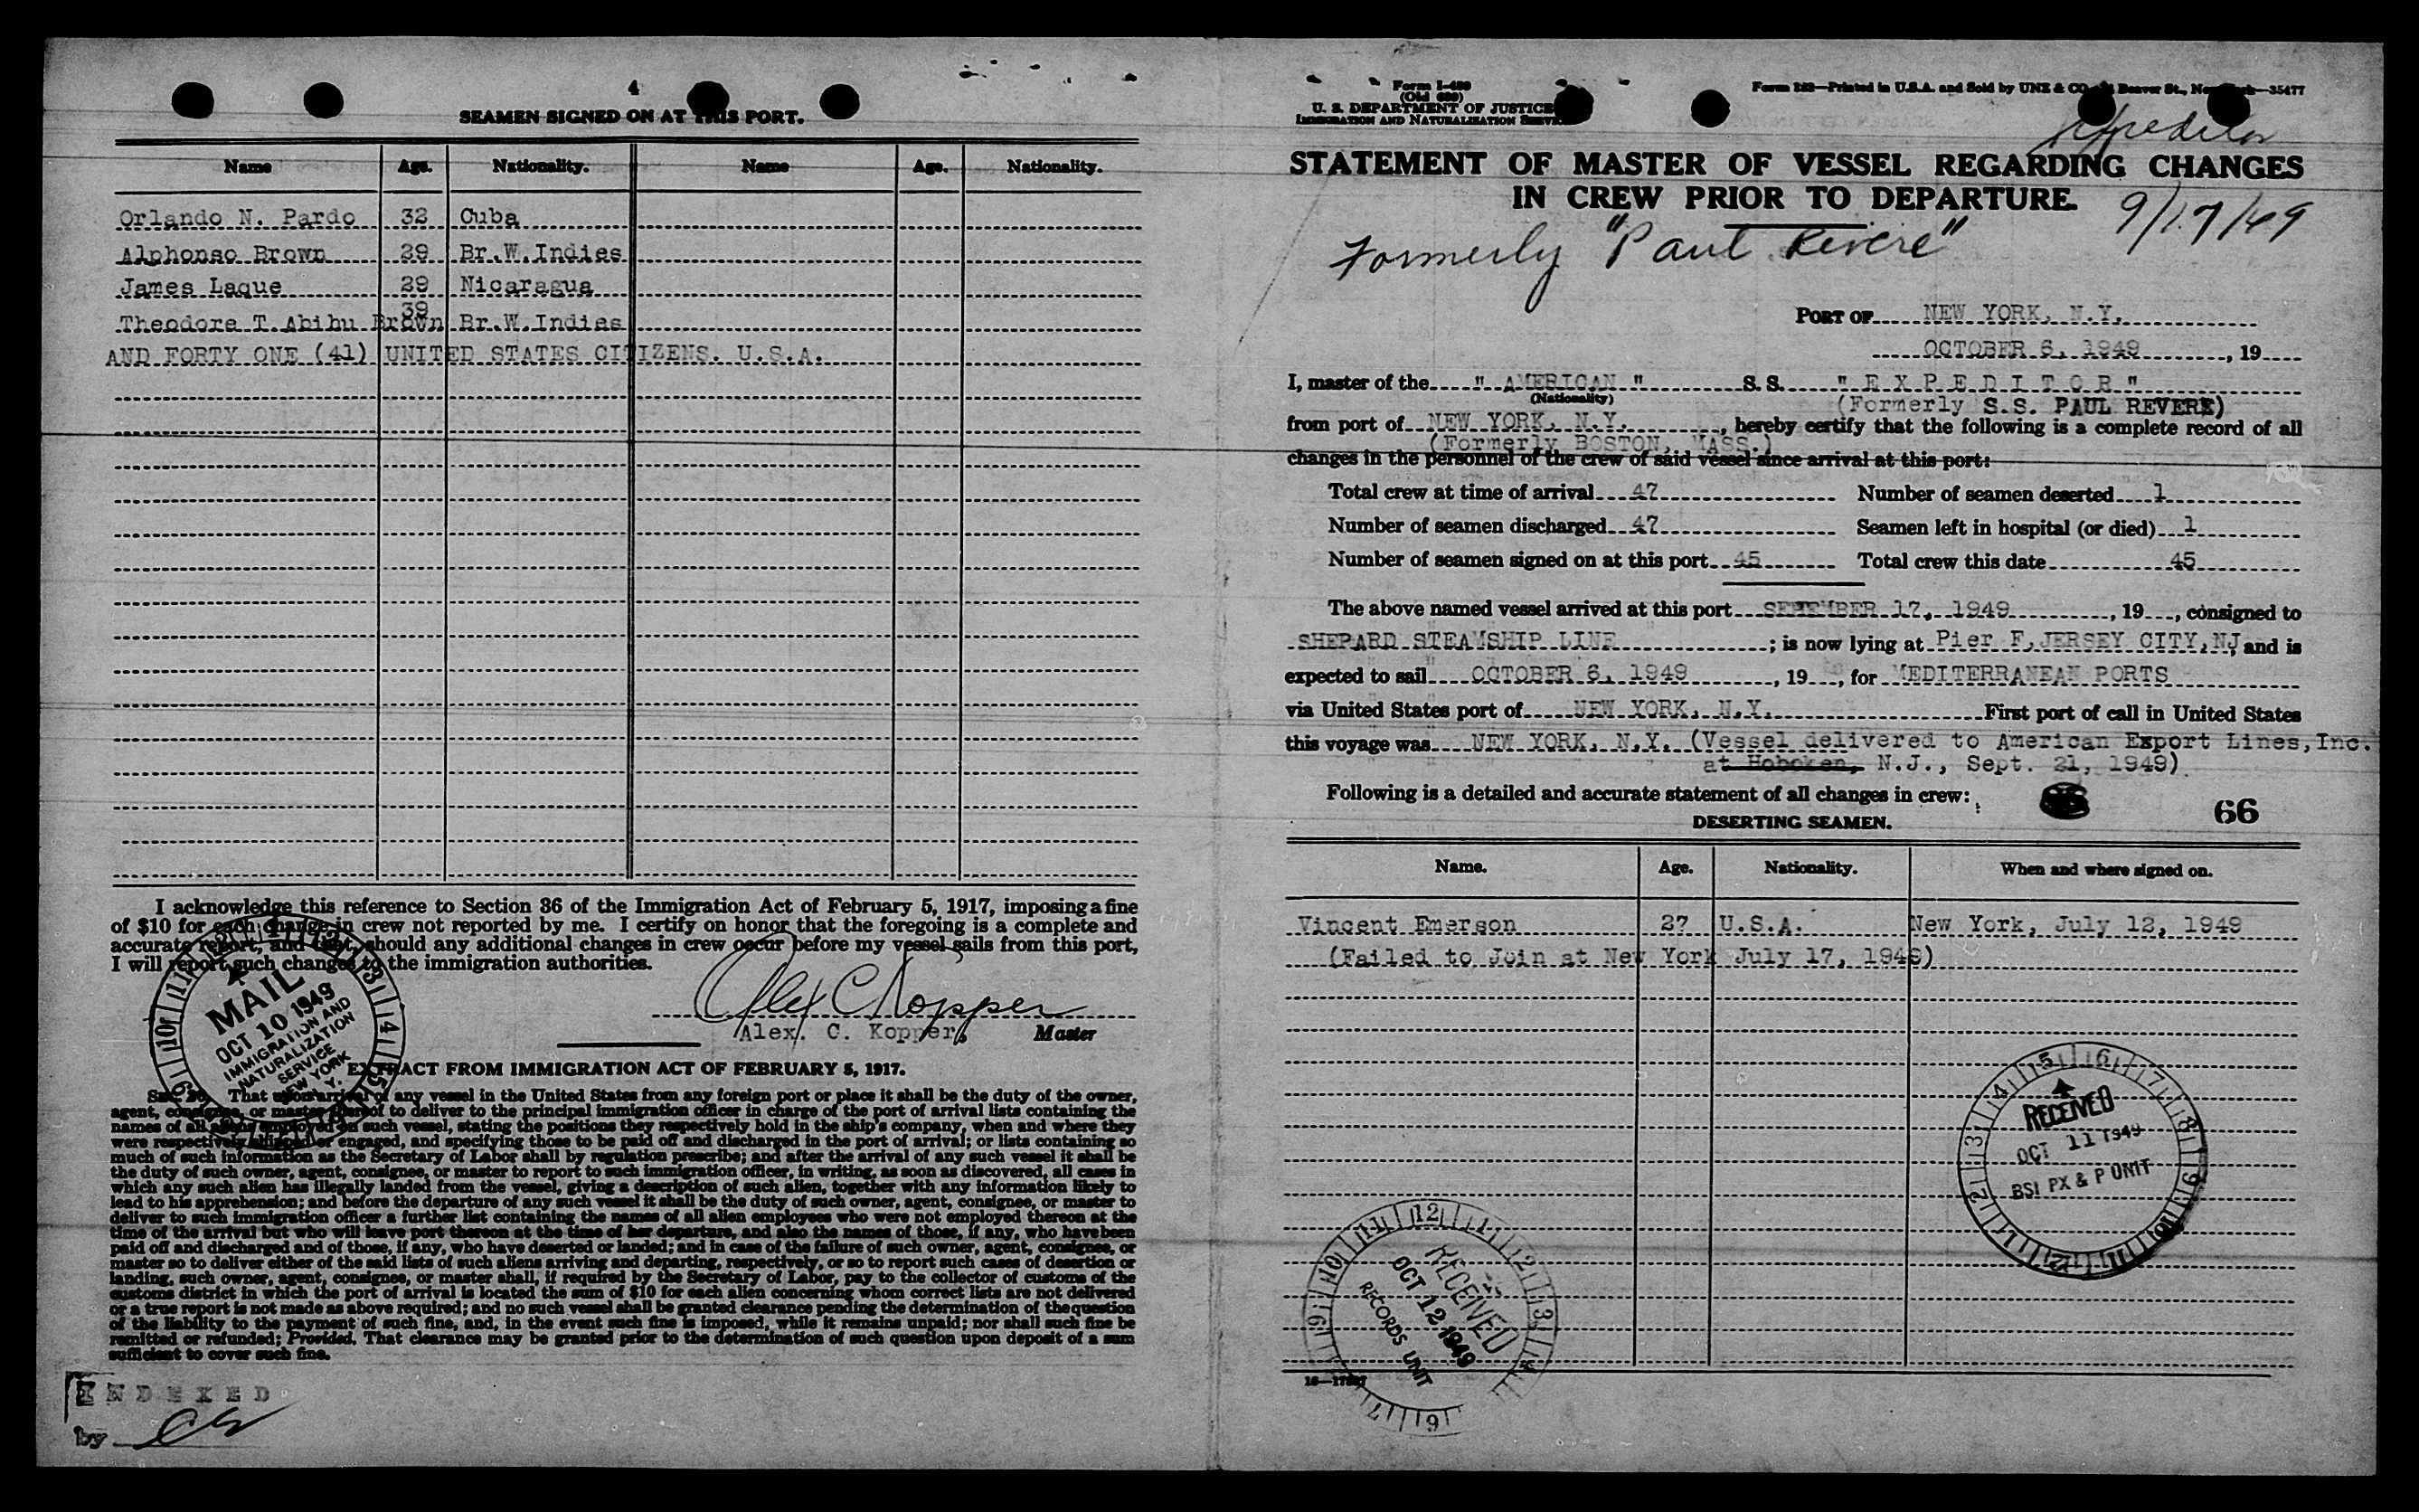 4
SEAMEN SIGNED ON AT THIS PORT.
Name Age. Nationality. Name Age. Nationality.
Orlando N. Pardo 32 Cuba
Alphonso Brown 29 Br.W.Indies
James Laque 29 Nicaragua
Theodore T.Abihu Brown 39 Br.W.Indies
AND FORTY ONE (41) UNITED STATES CITIZENS. U.S.A.
I acknowledge this reference to Section 36 of the Immigration Act of February 5, 1917, imposing a fine
of $10 for each change in crew not reported by me. I certify on honor that the foregoing is a complete and
accurate report, and that, should any additional changes in crew occur before my vessel sails from this port,
I will report such changes to the immigration authorities.
Alex C Kopper
Alex. C. Kopper, Master
MAIL
OCT 10 1949
IMMIGRATION AND
NATURALIZATION
SERVICE
NEW YORK
N. Y.
EXTRACT FROM IMMIGRATION ACT OF FEBRUARY 5, 1917.
Sec. 36. That upon arrival of any vessel in the United States from any foreign port or place it shall be the duty of the owner,
agent, consignee, or master thereof to deliver to the principal immigration officer in charge of the port of arrival lists containing the
names of all aliens employed on such vessel, stating the positions they respectively hold in the ship's company, when and where they
were respectively shipped or engaged, and specifying those to be paid off and discharged in the port of arrival; or lists containing so
much of such information as the Secretary of Labor shall by regulation prescribe; and after the arrival of any such vessel it shall be
the duty of such owner, agent, consignee, or master to report to such immigration officer, in writing, as soon as discovered, all cases in
which any such alien has illegally landed from the vessel, giving a description of such alien, together with any information likely to
lead to his apprehension; and before the departure of any such vessel it shall be the duty of such owner, agent, consignee, or master to
deliver to such immigration officer a further list containing the names of all alien employees who were not employed thereon at the
time of the arrival but who will leave port thereon at the time of her departure, and also the names of those, if any, who have been
paid off and discharged and of those, if any, who have deserted or landed; and in case of the failure of such owner, agent, consignee, or
master so to deliver either of the said lists of such aliens arriving and departing, respectively, or so to report such cases of desertion or
landing, such owner, agent, consignee, or master shall, if required by the Secretary of Labor, pay to the collector of customs of the
customs district in which the port of arrival is located the sum of $10 for each alien concerning whom correct lists are not delivered
or a true report is not made as above required; and no such vessel shall be granted clearance pending the determination of the question
of the liability to the payment of such fine, and, in the event such fine is imposed, while it remains unpaid; nor shall such fine be
remitted or refunded; Provided, That clearance may be granted prior to the determination of such question upon deposit of a sum
sufficient to cover such fine.
INDEXED
by
Form I-489
(Old 689)
U. S. DEPARTMENT OF JUSTICE
IMMIGRATION AND NATURALIZATION SERVICE
Form 232—Printed in U.S.A. and Sold by UNZ & CO. Beaver St., New York—35477
Expeditor
STATEMENT OF MASTER OF VESSEL REGARDING CHANGES
IN CREW PRIOR TO DEPARTURE.
9/17/49
Formerly "Paul Revere"
PORT OF NEW YORK, N.Y.
OCTOBER 6, 1949, 19
I, master of the " AMERICAN " S. S. " E X P E D I T O R "
(Nationality) (Formerly S.S. PAUL REVERE)
from port of NEW YORK, N.Y., hereby certify that the following is a complete record of all
(Formerly BOSTON, MASS.)
changes in the personnel of the crew of said vessel since arrival at this port:
Total crew at time of arrival 47 Number of seamen deserted 1
Number of seamen discharged 47 Seamen left in hospital (or died) 1
Number of seamen signed on at this port 45 Total crew this date 45
The above named vessel arrived at this port SEPEMBER 17, 1949, 19, consigned to
SHEPARD STEAMSHIP LINE; is now lying at Pier F, JERSEY CITY, NJ and is
expected to sail OCTOBER 6, 1949, 19, for MEDITERRANEAN PORTS
via United States port of NEW YORK, N.Y. First port of call in United States
this voyage was NEW YORK, N.Y. (Vessel delivered to American Export Lines, Inc.
at Hoboken, N.J., Sept. 21, 1949)
Following is a detailed and accurate statement of all changes in crew:
66
DESERTING SEAMEN.
Name. Age. Nationality. When and where signed on.
Vincent Emerson 27 U.S.A. New York, July 12, 1949
(Failed to Join at New York July 17, 1949)
RECEIVED
OCT 11 1949
BSI PX & P UNIT
RECEIVED
OCT 12 1949
RECORDS UNIT